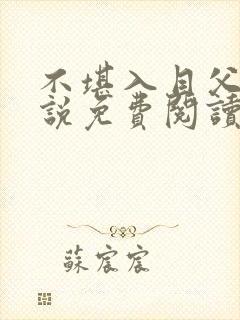 不堪入目父
説免費閱讀
蘇宸宸